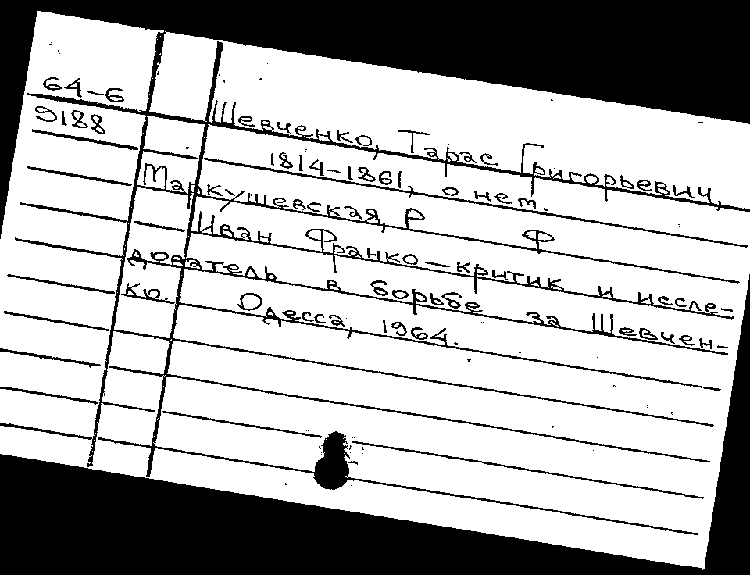 64-6
9188
Шевченко, Тарас Григорьевич,
1814-1861, о нет.
Маркушевская, Р Ф
Иван Франко - критик и иссле-
дователь в борьбе за Шевчен-
ко. Одесса, 1964.